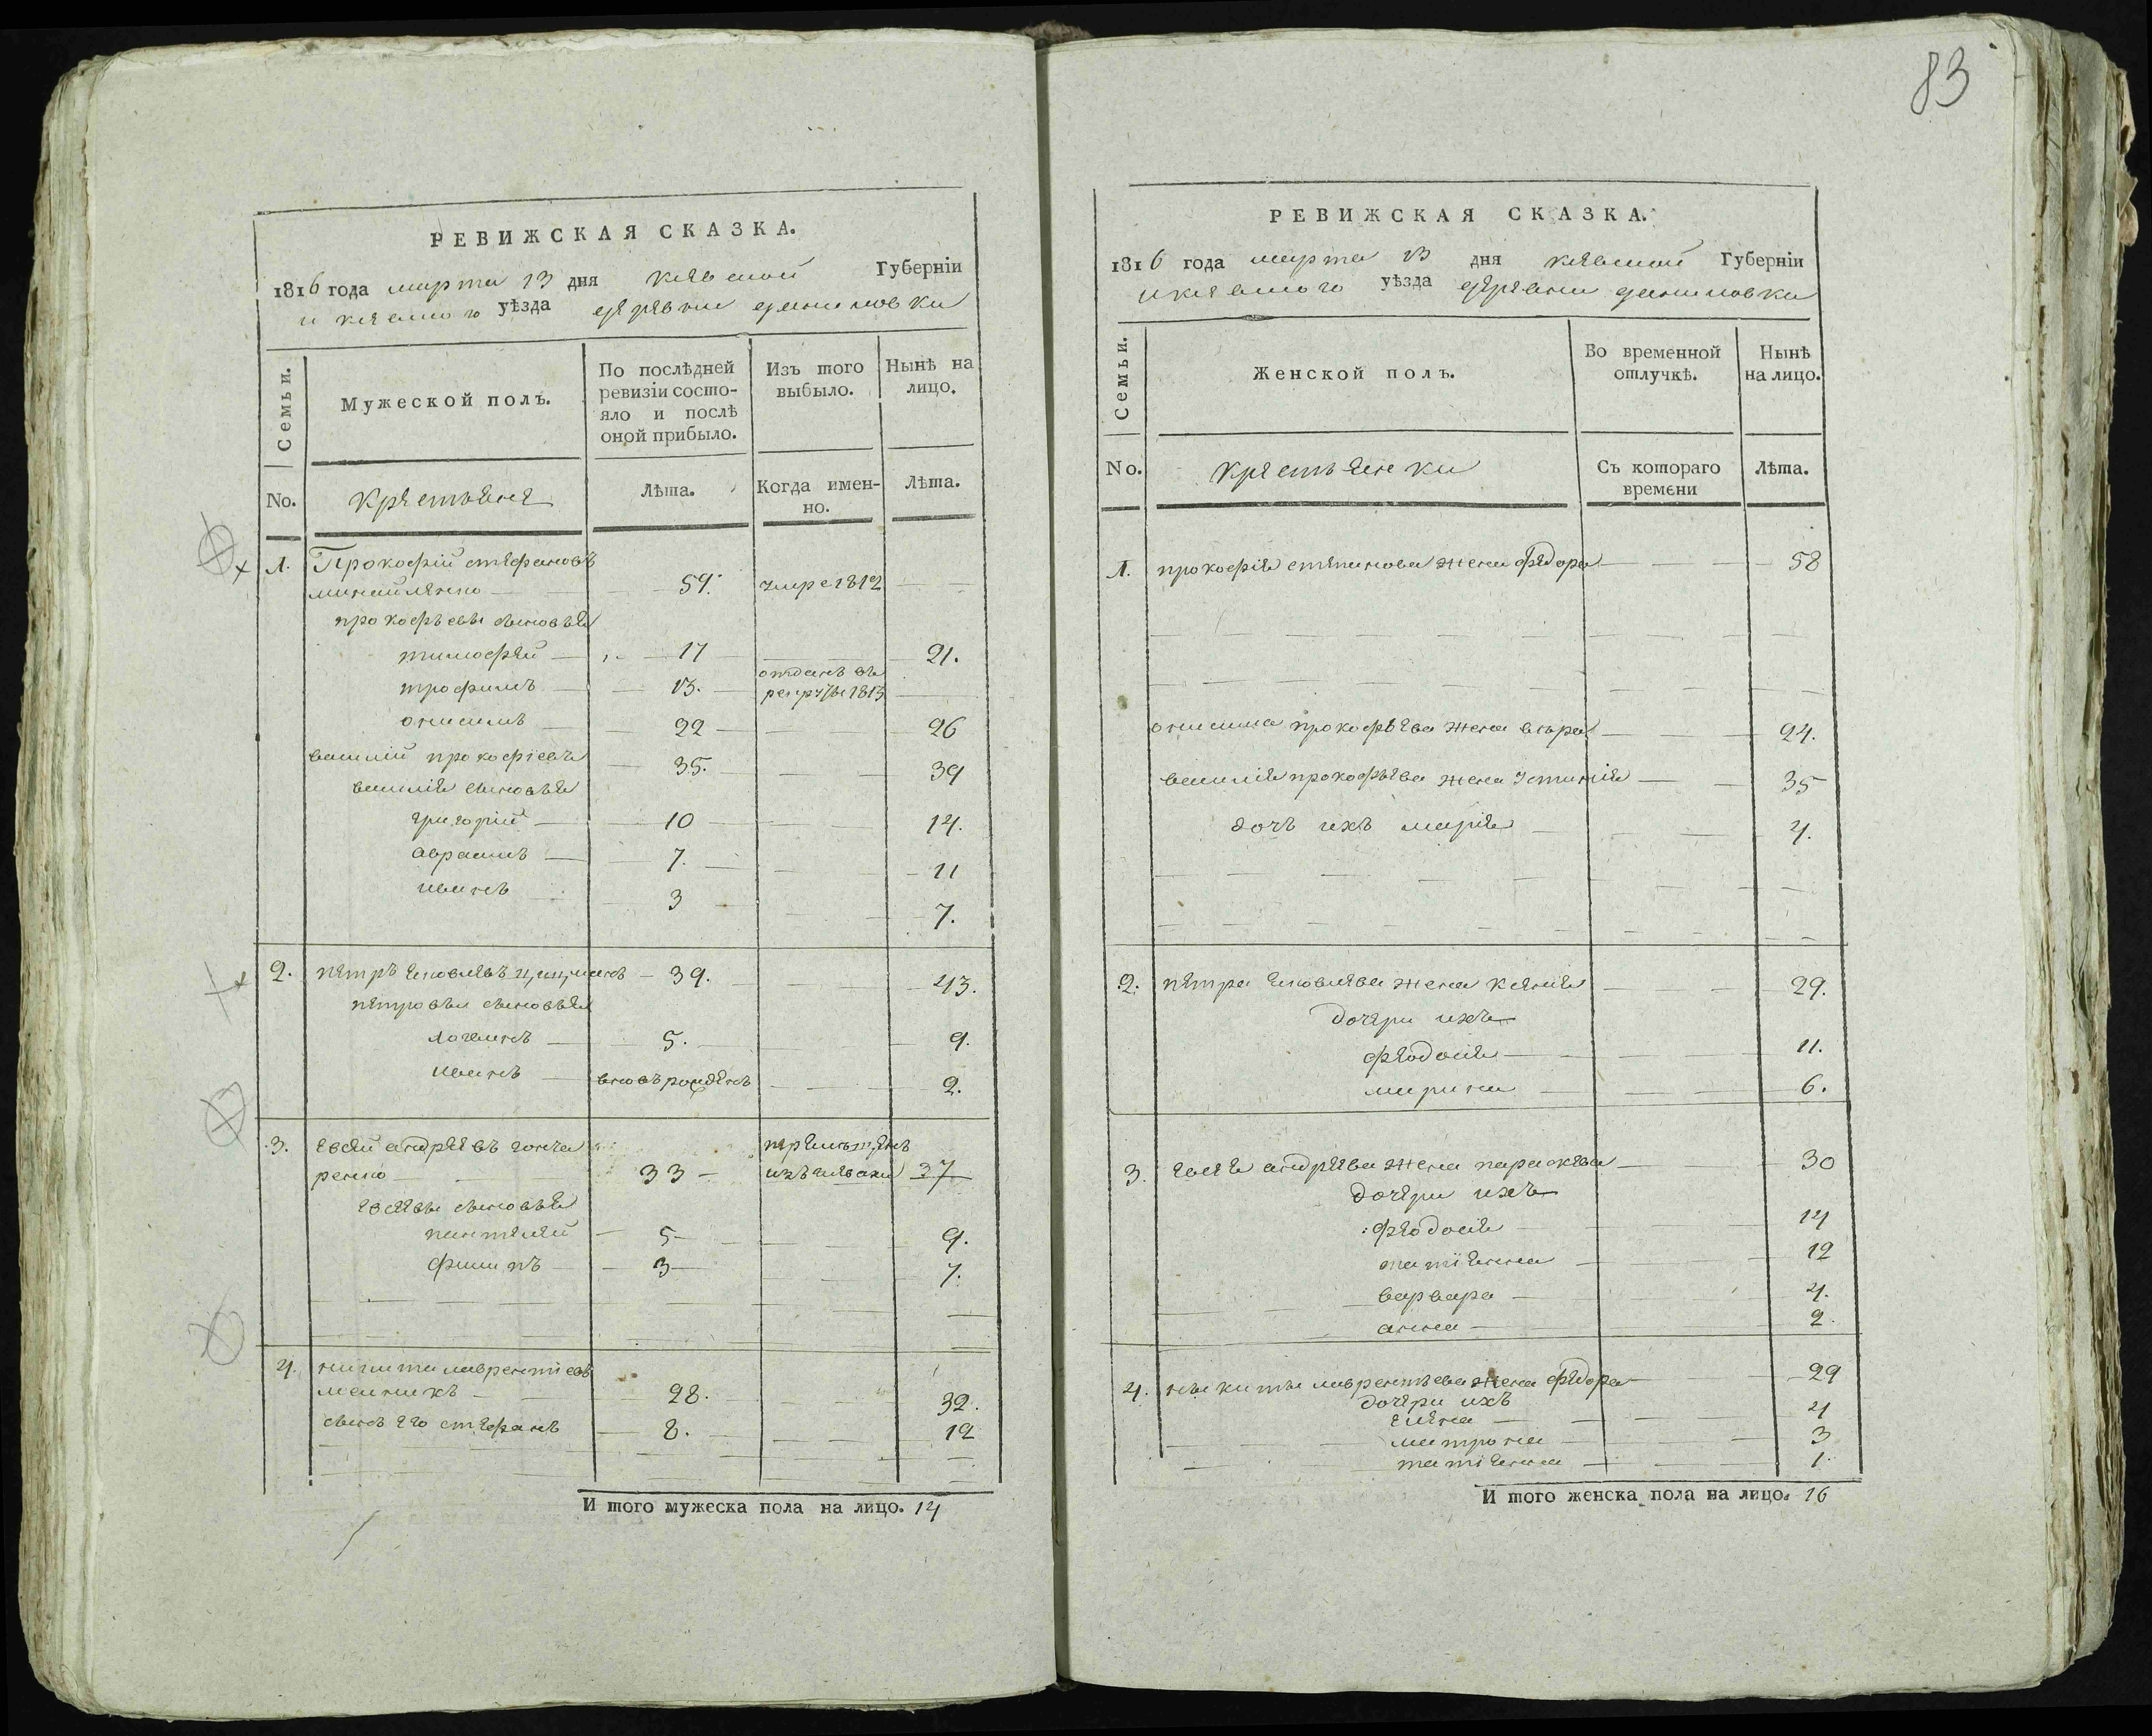 83
РЕВИЖСКАЯ СКАЗКА.
1816 года марта 13 дня киевской Губерніи
и киевского уѣзда деревни даниловки
Семьи.
Мужеской полъ.
По послѣдней ревизіи состояло и послѣ оной прибыло.
Изъ того выбыло.
Нынѣ на лицо.
No.
крестьяне
Лѣта.
Когда именно.
Лѣта.
1. Прокофій стефановъ
59. умре 1812
прокофьевы сыновья
тимофей 17 21.
трофимъ 13. отданъ въ рекруты 1813
онисимъ 22 26
василий прокофіевъ 35. 39
василия сыновья
григорій 10 14.
аврамъ 7. 11
иванъ 3 7.
2. петръ яковлевъ 39. 43.
петровы сыновья
логвинъ 5. 9.
иванъ вновъ рожденъ 2.
3. евсей андреевъ гонча
ренко 33 37
евсеевы сыновья
пантелей 5 9.
филипъ 3 7.
4. никита лаврентіевъ
мелникъ 28. 32.
сынъ его стефанъ 8. 12
И того мужеска пола на лицо. 14
РЕВИЖСКАЯ СКАЗКА.
1816 года марта 13 дня киевской Губерніи
и киевского уѣзда деревни даниловки
Семьи.
Женской полъ.
Во временной отлучкѣ.
Нынѣ на лицо.
No.
крестьянки
Съ котораго времени
Лѣта.
1. прокофія степанова жена федора 58
онисима прокофьева жена вера 24.
василия прокофьева жена устиния 35
дочъ ихъ мария 4.
2. петра яковлева жена ксения 29.
дочери ихъ
феодосия 11.
марина 6.
3. евсея андреева жена парасжева 30
дочери ихъ
феодосия 14
татіянна 12
варвара 4.
анна 2.
4. никиты лаврентьева жена федора 29
дочери ихъ
елена 4
матрона 3
татіянна 1.
И того женска пола на лицо. 16